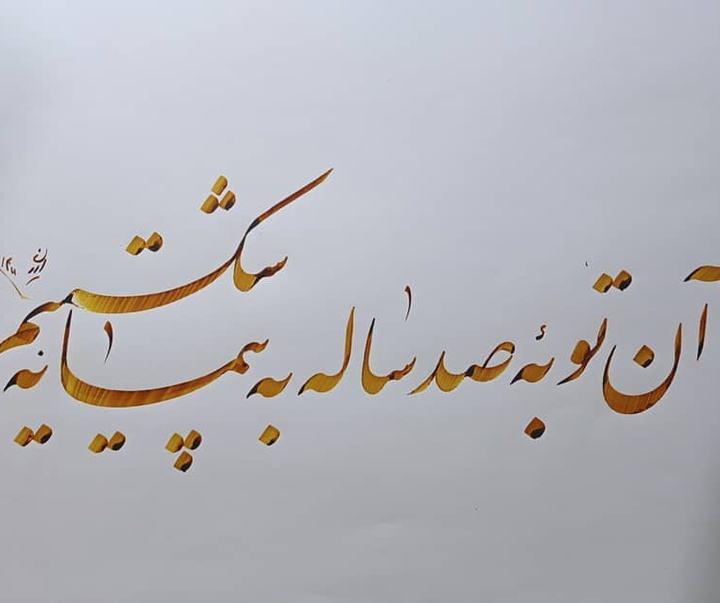 آن توبهٔ صد ساله به پیمانه شکستیم